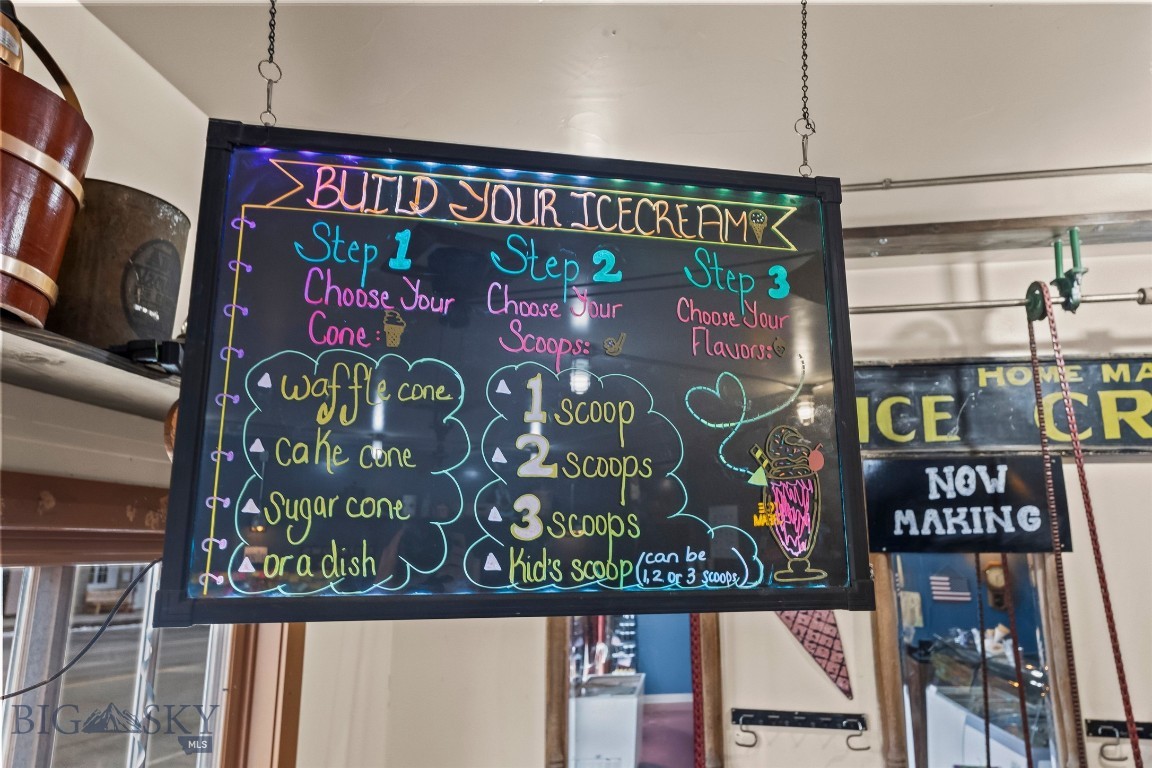 BUILD YOUR ICECREAM
Step 1
Choose Your
Cone:
waffle cone
cake cone
sugar cone
or a dish
Step 2
Choose Your
Scoops:
1 scoop
2 scoops
3 scoops
Kid's scoop (can be
1, 2 or 3 scoops)
Step 3
Choose Your
Flavors:
HOME MA
ICE CR
NOW
MAKING
BIG SKY
MLS